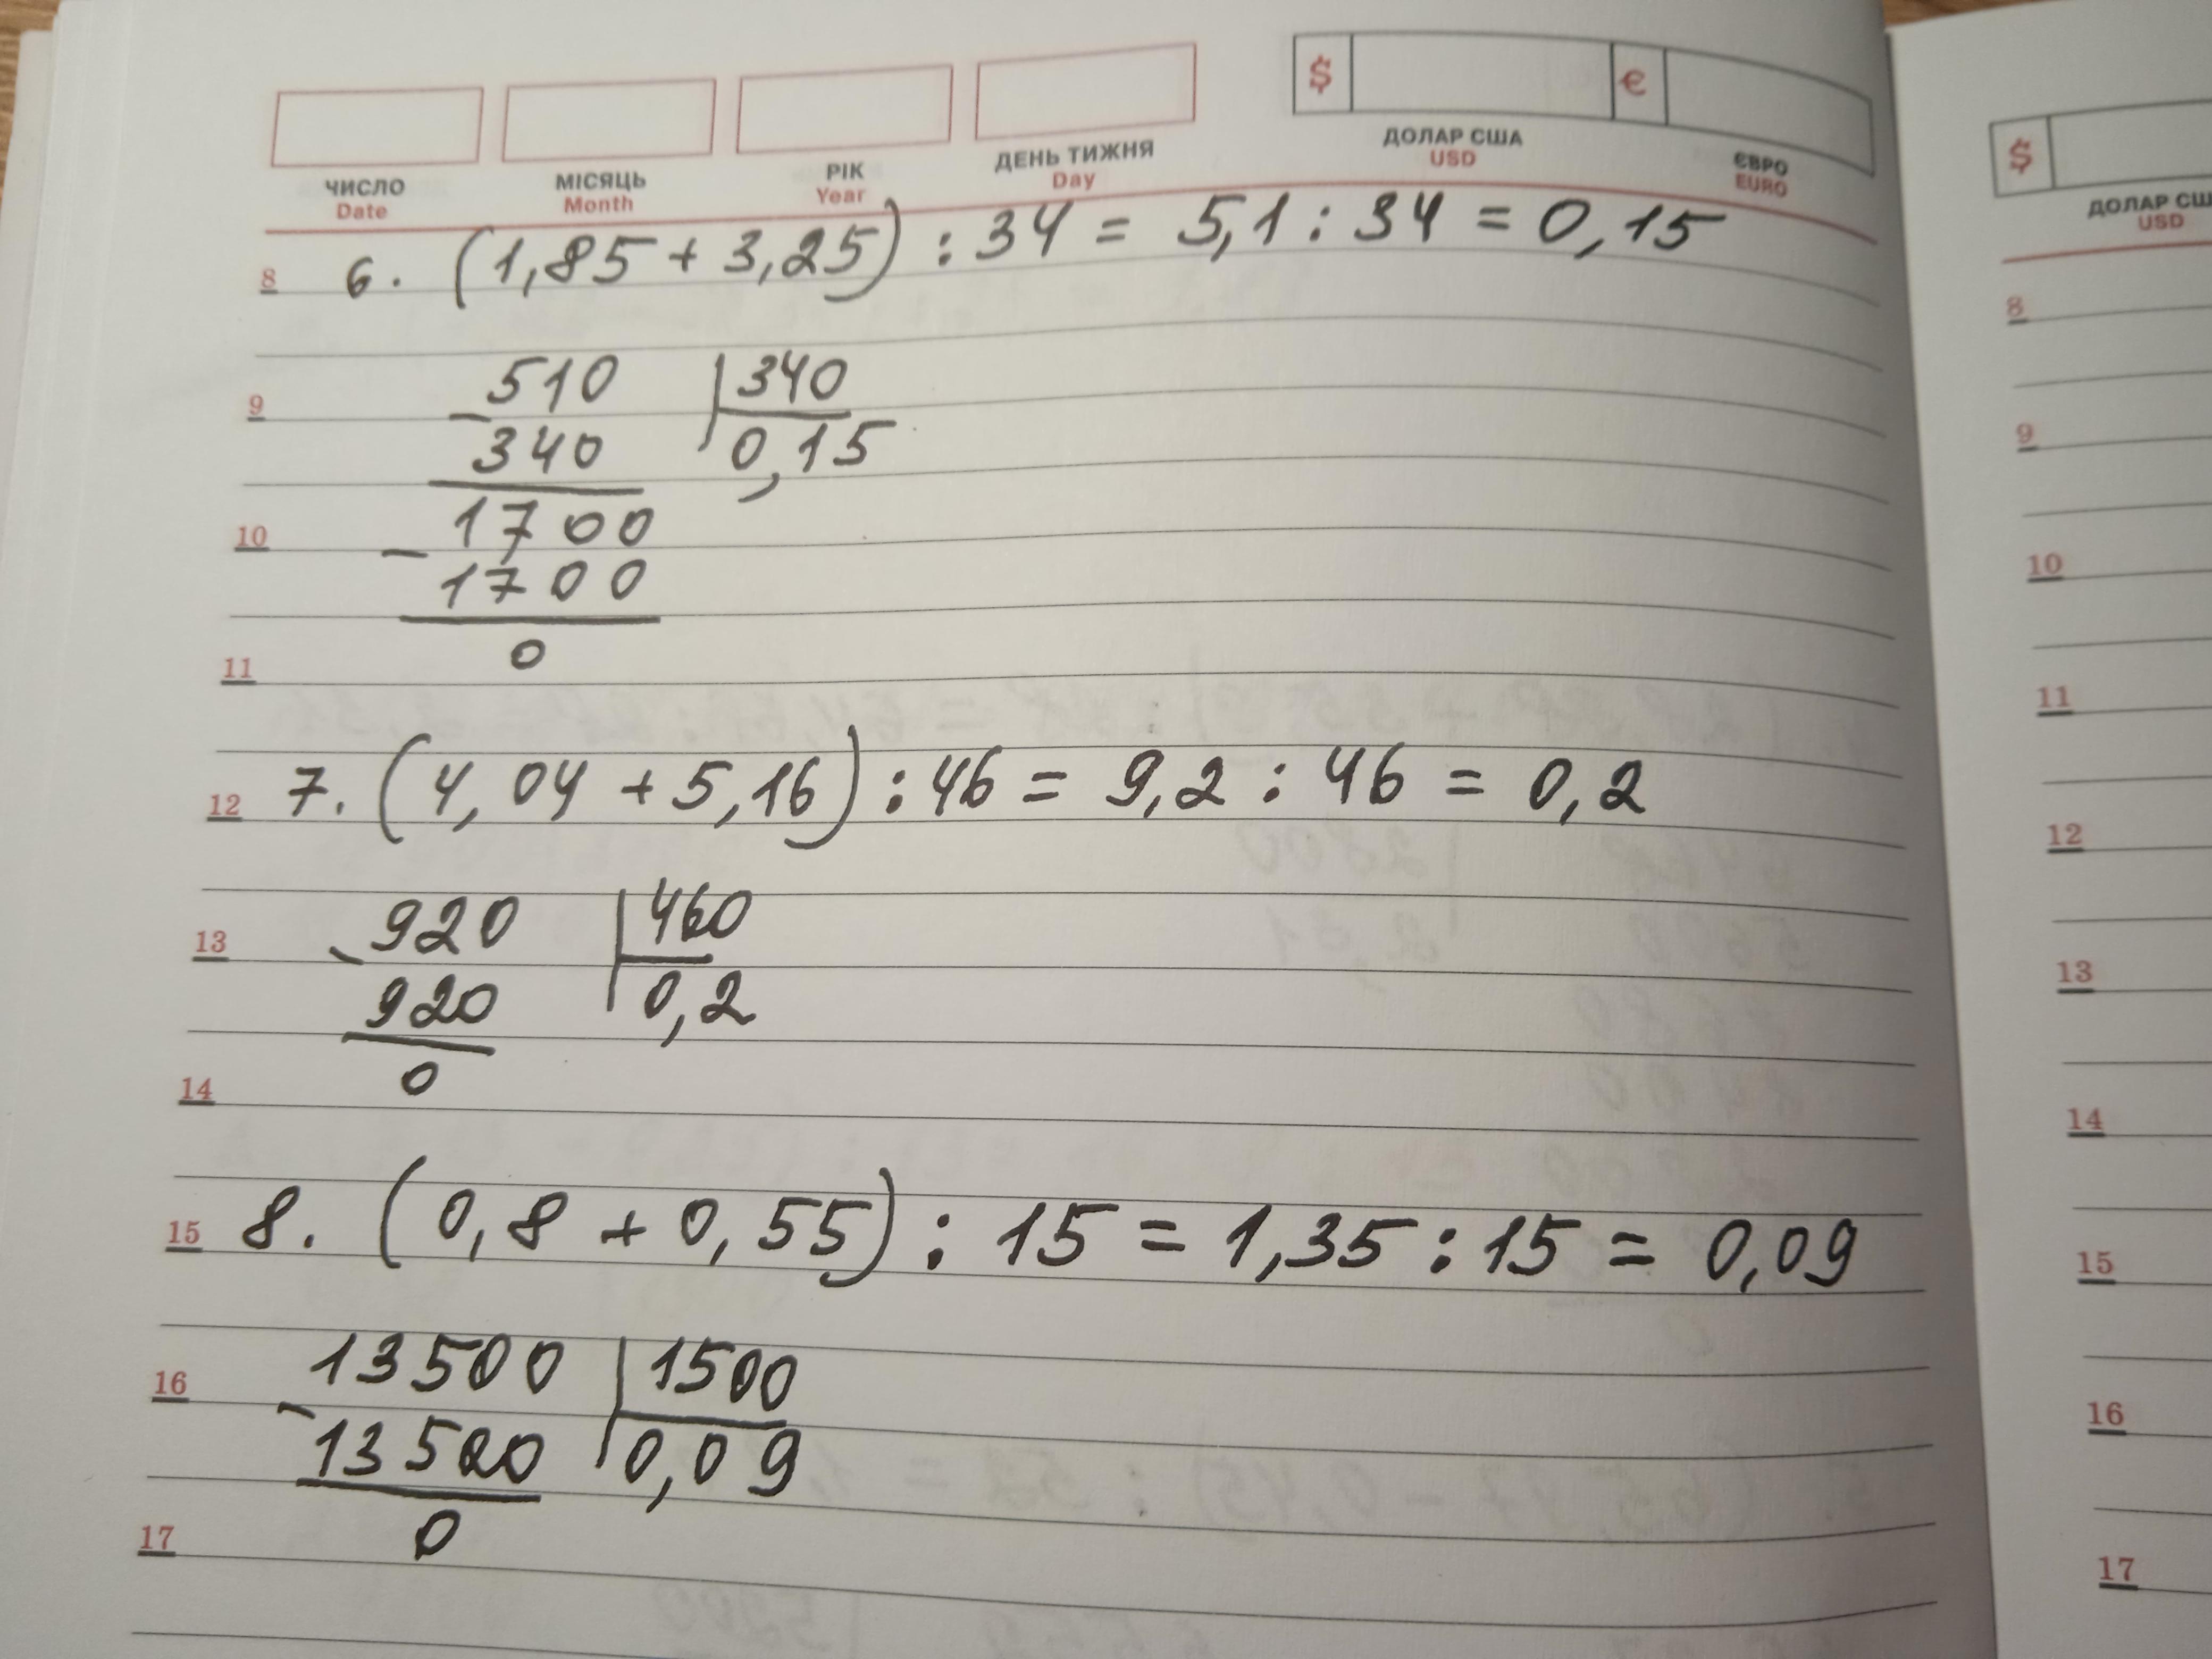 $ €
ЧИСЛО МІСЯЦЬ РІК ДЕНЬ ТИЖНЯ ДОЛАР США ЄВРО
Date Month Year Day USD EURO
8 6. (1,85 + 3,25) : 34 = 5,1 : 34 = 0,15
9 510 340
- 340 0,15
10 1700
- 1700
11 0
12 7. (4,04 + 5,16) : 46 = 9,2 : 46 = 0,2
13 920 460
- 920 0,2
14 0
15 8. (0,8 + 0,55) : 15 = 1,35 : 15 = 0,09
16 13500 1500
- 13500 0,09
17 0
$
ДОЛАР
USD
8
9
10
11
12
13
14
15
16
17